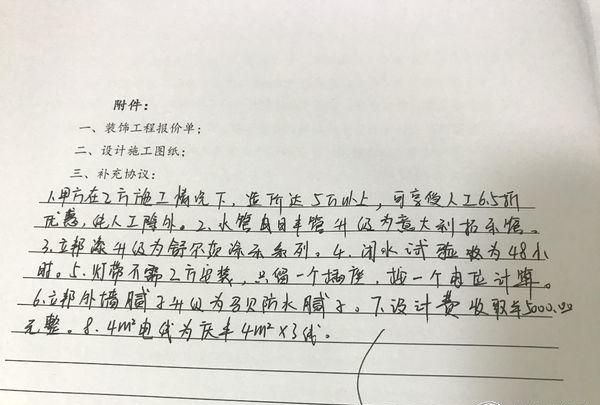 附件：
一、装饰工程报价单；
二、设计施工图纸；
三、补充协议：
1.甲方在乙方施工情况下，造价达5万以上，可享受人工6.5折
优惠，纯人工除外。2.水管由日丰管升级为意大利
3.立邦漆升级为舒尔 涂 系列。4.闭水试验改为48小
时。5.灯带不需乙方安装，只留一个插座，按一个点位计算。
6.立邦外墙腻子升级为马贝防水腻子。7.设计费收取￥5000.00
元整。8.4m²电线为庆丰4m²×3线。